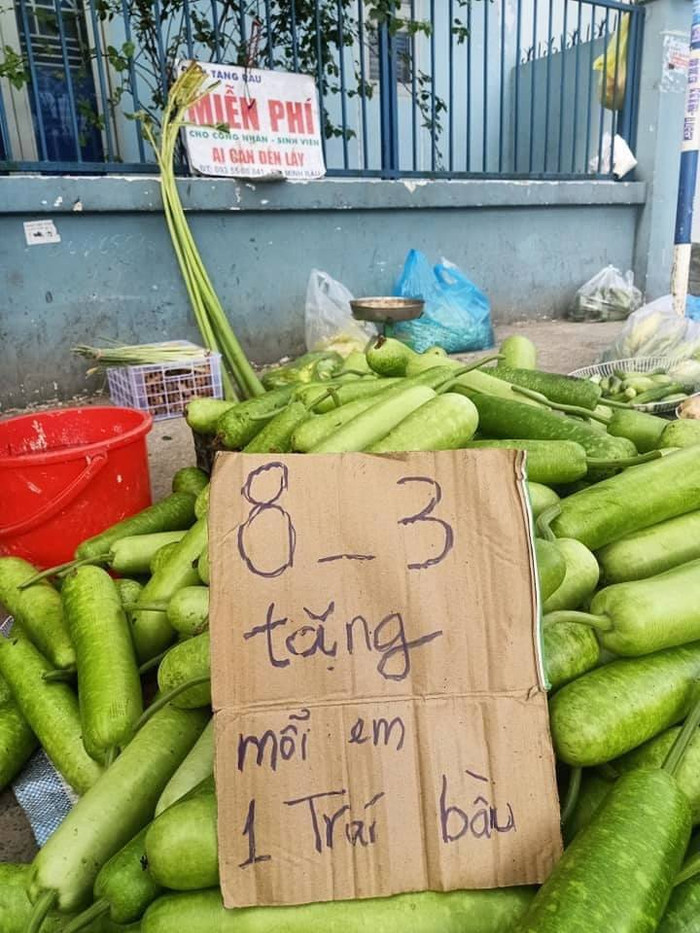 TẶNG RAU
MIỄN PHÍ
CHO CÔNG NHÂN - SINH VIÊN
AI CẦN ĐẾN LẤY
8_3
tặng
mỗi em
1 Trái bầu